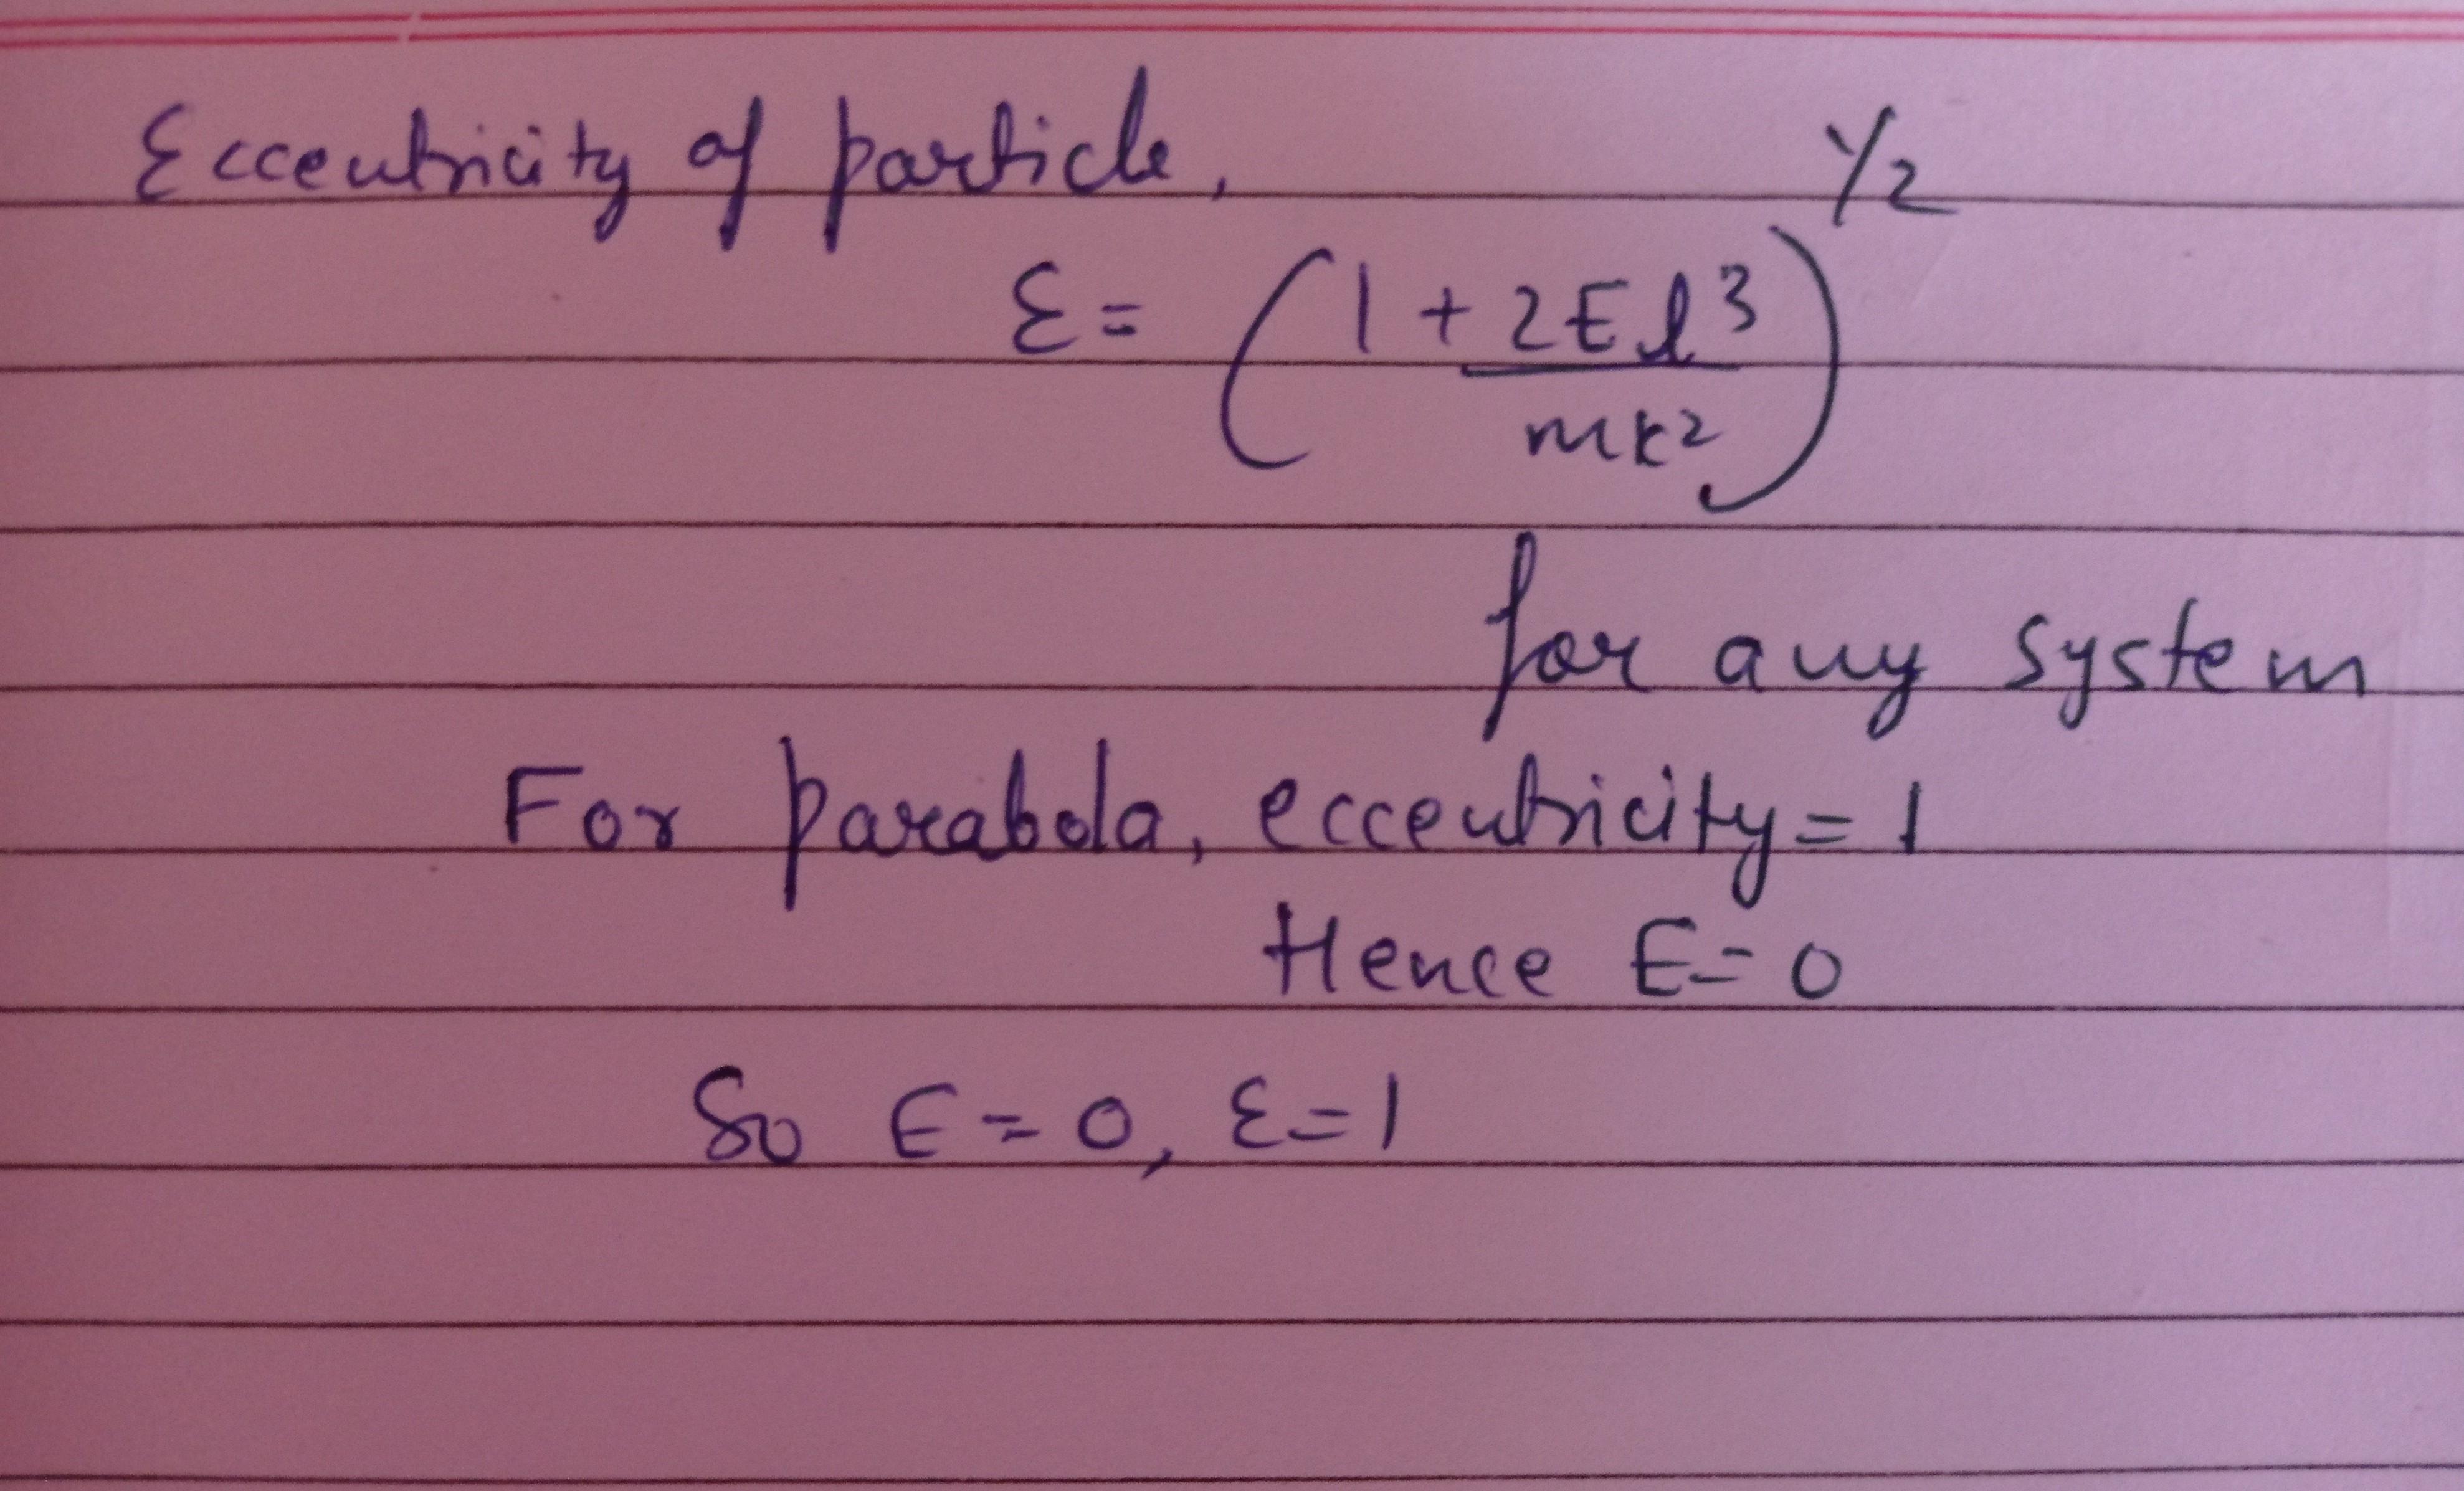 Eccentricity of particle,
ε = (1 + 2El³/mk²)^1/2
for any system
For parabola, eccentricity = 1
Hence E = 0
So E = 0, ε = 1